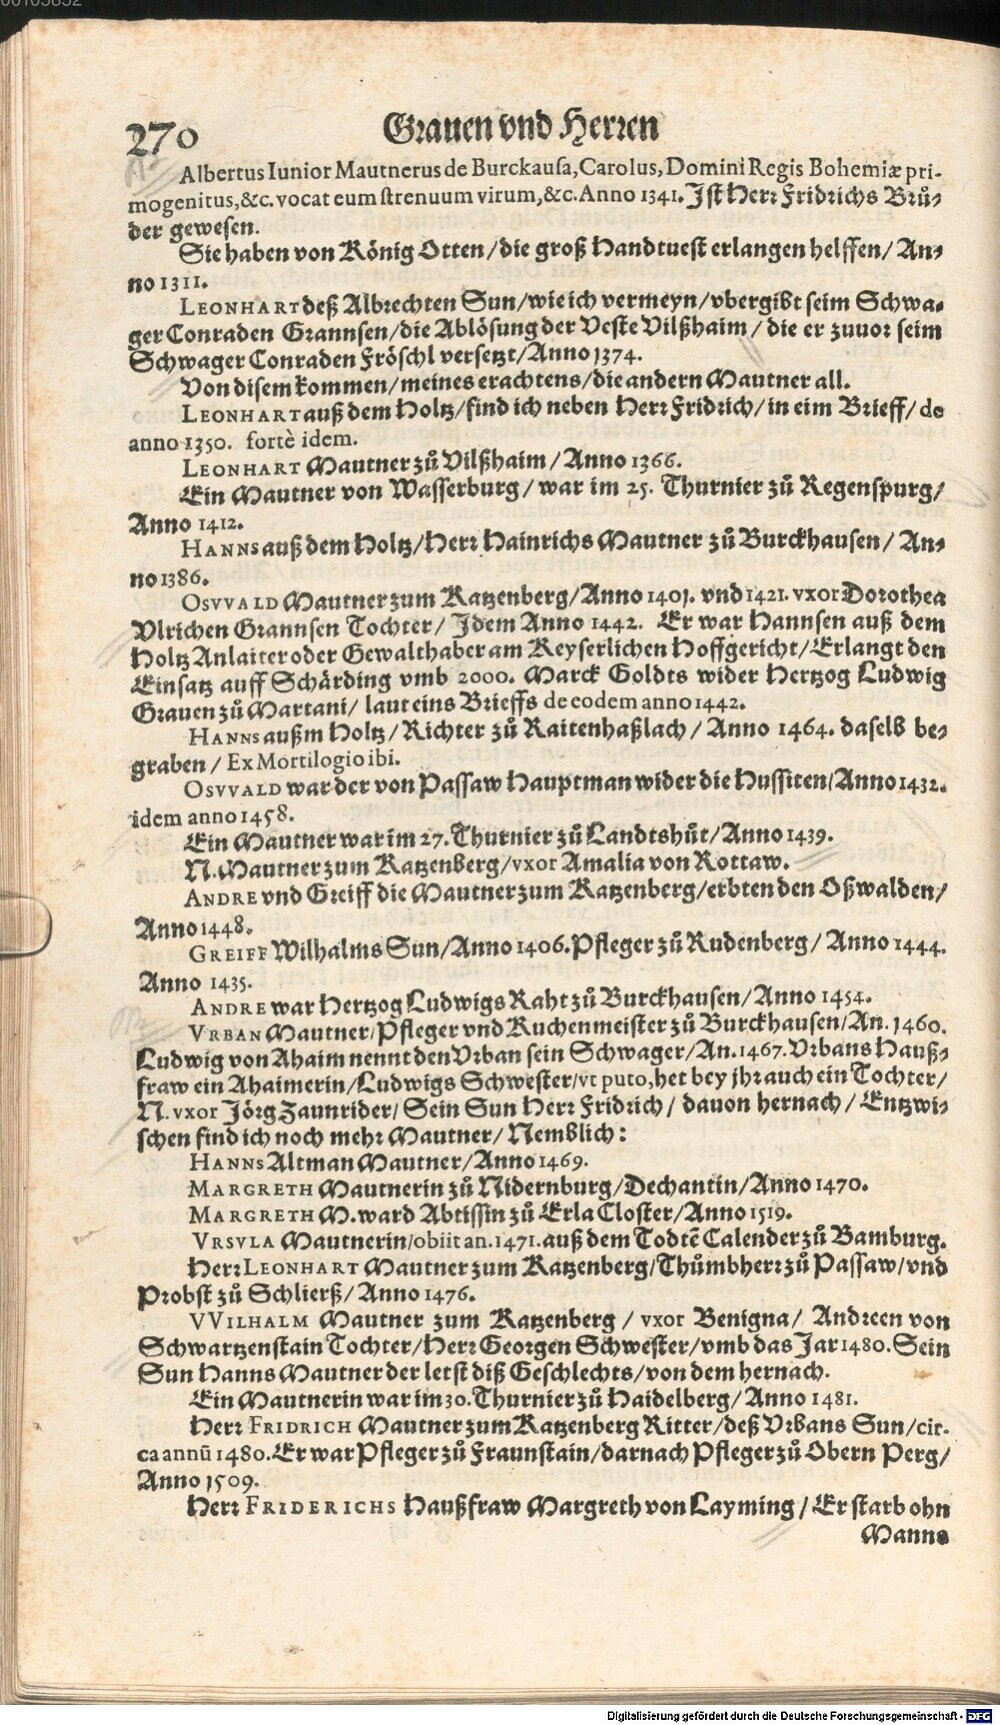 00103832
270
Grauen vnd Herren
Albertus Iunior Mautnerus de Burckausa, Carolus, Domini Regis Bohemiæ pri-
mogenitus, &c. vocat eum strenuum virum, &c. Anno 1341. Ist Herr Fridrichs Brů-
der gewesen.
Sie haben von König Otten/ die groß Handtuest erlangen helffen/ An-
no 1311.
LEONHART deß Albrechten Sun/ wie ich vermeyn/ vbergibt seim Schwa-
ger Conraden Grannsen/ die Ablösung der Veste Vilßhaim/ die er zuuor seim
Schwager Conraden Fröschl versetzt/ Anno 1374.
Von disem kommen/ meines erachtens/ die andern Mautner all.
LEONHART auß dem Holtz/ find ich neben Herr Fridrich/ in eim Brieff/ de
anno 1350. fortè idem.
LEONHART Mautner zů Vilßhaim/ Anno 1366.
Ein Mautner von Wasserburg/ war im 25. Thurnier zů Regenspurg/
Anno 1412.
HANNS auß dem Holtz/ Herr Hainrichs Mautner zů Burckhausen/ An-
no 1386.
OSVVALD Mautner zum Katzenberg/ Anno 1401. vnd 1421. vxor Dorothea
Vlrichen Grannsen Tochter/ Idem Anno 1442. Er war Hannsen auß dem
Holtz Anlaiter oder Gewalthaber am Keyserlichen Hoffgericht/ Erlangt den
Einsatz auff Schärding vmb 2000. Marck Goldts wider Hertzog Ludwig
Grauen zů Martani/ laut eins Brieffs de eodem anno 1442.
HANNS außm Holtz/ Richter zů Raitenhaßlach/ Anno 1464. daselb be-
graben/ Ex Mortilogio ibi.
OSVVALD war der von Passaw Hauptman wider die Hussiten/ Anno 1432.
idem anno 1458.
Ein Mautner war im 27. Thurnier zů Landtshůt/ Anno 1439.
N. Mautner zum Katzenberg/ vxor Amalia von Rottaw.
ANDRE vnd Greiff die Mautner zum Katzenberg/ erbten den Oßwalden/
Anno 1448.
GREIFF Wilhalms Sun/ Anno 1406. Pfleger zů Rudenberg/ Anno 1444.
Anno 1435.
ANDRE war Hertzog Ludwigs Raht zů Burckhausen/ Anno 1454.
VRBAN Mautner/ Pfleger vnd Kuchenmeister zů Burckhausen/ An. 1460.
Ludwig von Ahaim nennt den Vrban sein Schwager/ An. 1467. Vrbans Hauß-
fraw ein Ahaimerin/ Ludwigs Schwester/ vt puto, het bey jhr auch ein Tochter/
N. vxor Jörg Zaunrider/ Sein Sun Herr Fridrich/ dauon hernach/ Entzwi-
schen find ich noch mehr Mautner/ Nemblich:
HANNS Altman Mautner/ Anno 1469.
MARGRETH Mautnerin zů Nidernburg/ Dechantin/ Anno 1470.
MARGRETH M. ward Abtissin zů Erla Closter/ Anno 1519.
VRSVLA Mautnerin/ obiit an. 1471. auß dem Todtē Calender zů Bamburg.
Herr LEONHART Mautner zum Katzenberg/ Thůmbherr zů Passaw/ vnd
Probst zů Schlierß/ Anno 1476.
VVILHALM Mautner zum Katzenberg/ vxor Benigna/ Andreen von
Schwartzenstain Tochter/ Herr Georgen Schwester/ vmb das Jar 1480. Sein
Sun Hanns Mautner der letst diß Geschlechts/ von dem hernach.
Ein Mautnerin war im 30. Thurnier zů Haidelberg/ Anno 1481.
Herr FRIDRICH Mautner zum Katzenberg Ritter/ deß Vrbans Sun/ cir-
ca annū 1480. Er war Pfleger zů Fraunstain/ darnach Pfleger zů Obern Perg/
Anno 1509.
Herr FRIDERICHS Haußfraw Margreth von Layming/ Er starb ohn
Manns
Digitalisierung gefördert durch die Deutsche Forschungsgemeinschaft - DFG